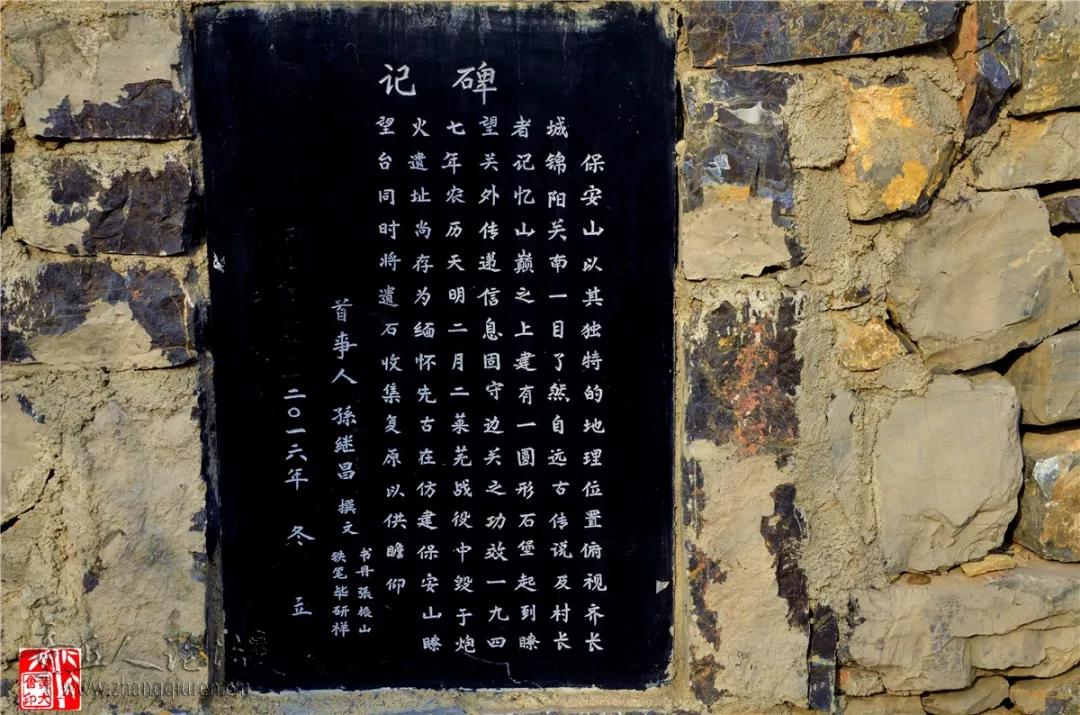 碑记
保安山以其独特的地理位置俯视齐长
城锦阳关南一目了然自远古传说及村长
者记忆山巅之上建有一圆形石堡起到瞭
望关外传递信息固守边关之功效一九四
七年农历天明二月二莱芜战役中毁于炮
火遗址尚存为缅怀先古在仿建保安山瞭
望台同时将遗石收集复原以供瞻仰
首事人 孫继昌 撰文
书丹 張振山
铁笔 毕研祥
二〇一六年 冬 立
www.zhangqiuren.cn